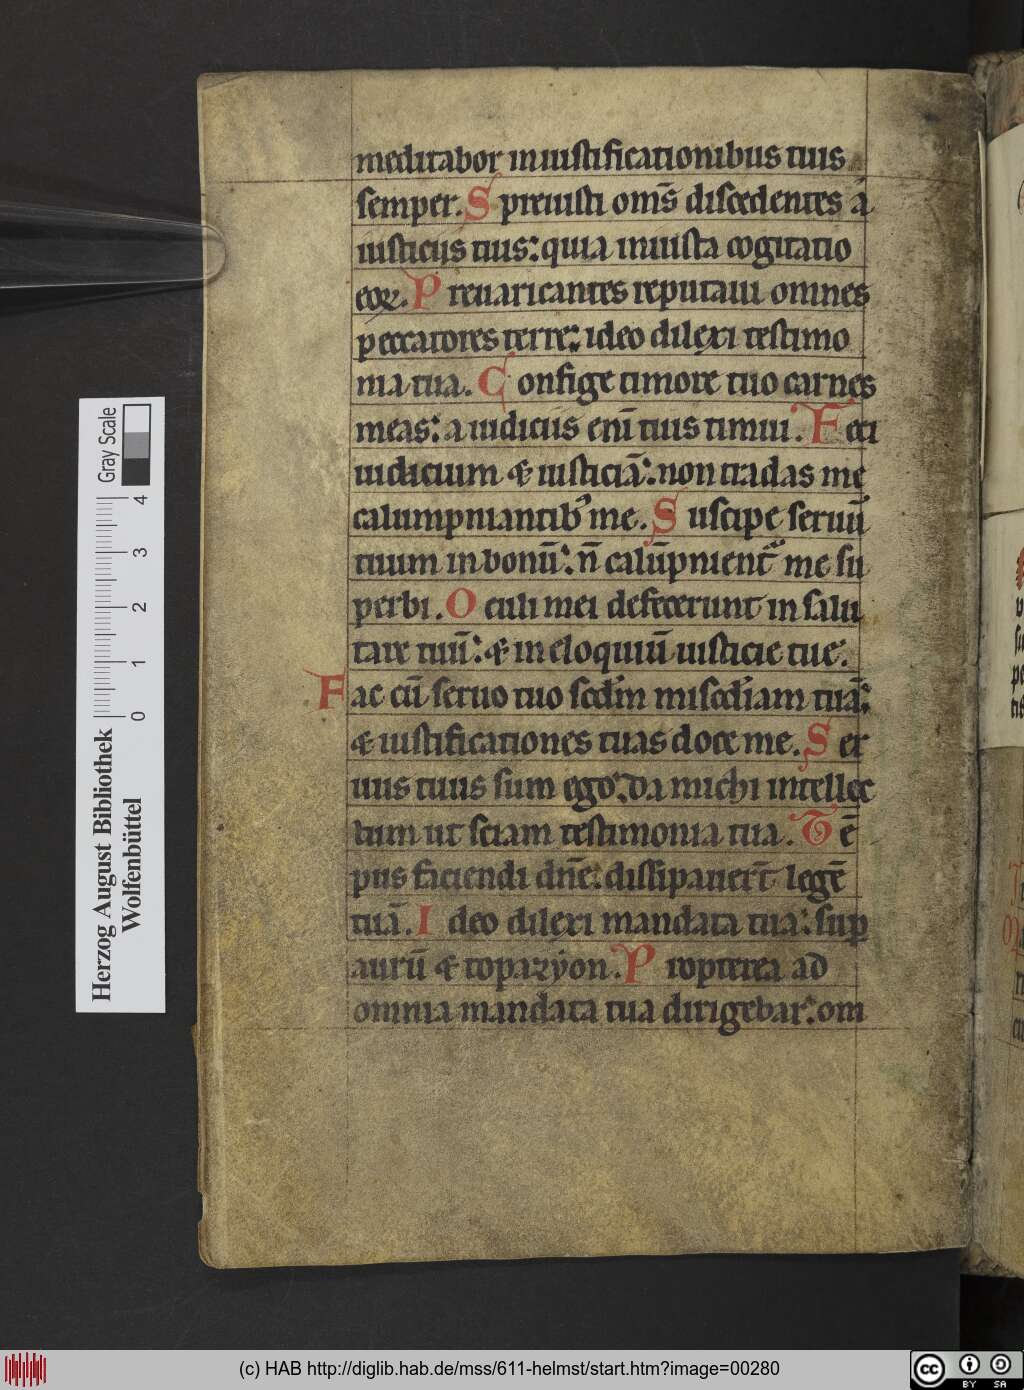 meditabor in iustificationibus tuis
semper. Spreuisti om̄s discedentes á
iusticiis tuis: quia iniusta cogitatio
eoꝝ. Preuaricantes reputaui omnes
peccatores terre: ideo dilexi testimo
nia tua. Confige timore tuo carnes
meas: a iudiciis eni̅ tuis timui. Feci
iudicium & iusticiā: non tradas me
calumpniantibꝰ me. Suscipe seruū
tuum in bonū: n̄ calūpnient᷑ me su
perbi. Oculi mei defecerunt in salu
tare tuū: & in eloquiū iusticie tue.
Fac cū seruo tuo scd̄m mis̄cdiam tuā:
& iustificationes tuas doce me. Ser
uus tuus sum ego: da michi intellec
tum ut sciam testimonia tua. Tē
pus faciendi dn̄e: dissipauer̄t legē
tuā. Ideo dilexi mandata tua: suꝑ
aurū & topazÿon. Propterea ad
omnia mandata tua dirigebar: om
Herzog August Bibliothek
Wolfenbüttel
Gray Scale
0 1 2 3 4
(c) HAB http://diglib.hab.de/mss/611-helmst/start.htm?image=00280
cc BY SA